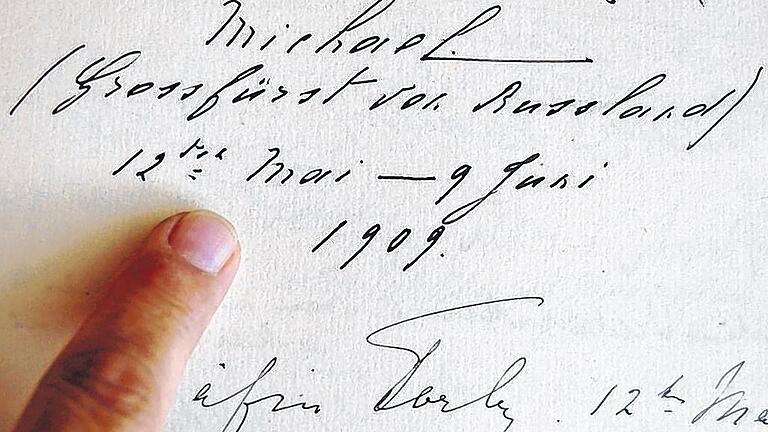 Michael
(Grossfürst von Russland)
12ten Mai — 9 Juni
1909.
äfin Torby. 12ten Ma